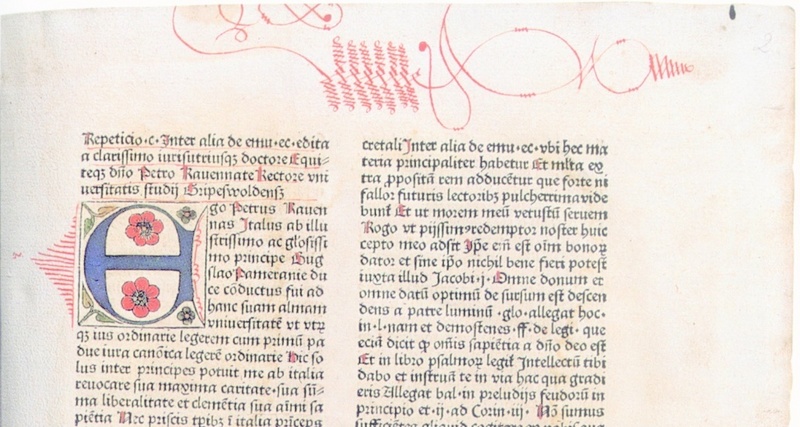 Repeticio·c·Inter alia de emu·ec·edita
a clarissimo iurisutriusqꝫ doctore Equi-
teqꝫ dño Petro Rauennate Rectore vni
uersitatis studij Gripeswoldensꝫ
Ego Petrus Rauen
nas Italus ab illu
strissimo ac glosissi
mo principe Bug
slao Pameranie du
ce cõductus fui ad
hanc suam almam
vniuersitatẽ vt vtrꝫ
qꝫ ius ordinarie legerem cum primũ pa
due iura canõica legerẽ ordinarie Hic so
lus inter principes potuit me ab italia
reuocare sua maxima caritate·sua sũ-
ma liberalitate et clemẽtia sua aĩmi sa
piẽtia Nec priscis tꝑibꝫ ĩ italia prĩceps
cretali Inter alia de emu·ec·vbi hec ma
teria principaliter habetur Et mĺta ex
tra ꝓpositã rem adducẽtur que forte ni
fallor futuris lectoribꝫ pulcherrima vide
bunt̃ Et ut morem meũ vetustũ seruem
Rogo vt pijssimꝰredemptor noster huic
cepto meo adsit Ip̃e em̃ est oim̃ bonoꝝ
dator et sine ip̃o nichil bene fieri potest
iuxta illud Jacobi·j·Omne donum et
omne datũ optimũ de sursum est descen
dens a patre luminũ·glo·allegat hoc·
in·l·nam et demostenes·ff·de legi·que
eciã dicit ꝙ om̃is sapiẽtia a dño deo est
Et in libro psalmoꝝ legit̃ Intellectũ tibi
dabo et instruã te in via hac qua gradi
eris Allegat bal·in preludijs feudorũ in
principio et·ij·ad Corin·iij· Nõ sumus
sufficiẽtes aliquid cogitare